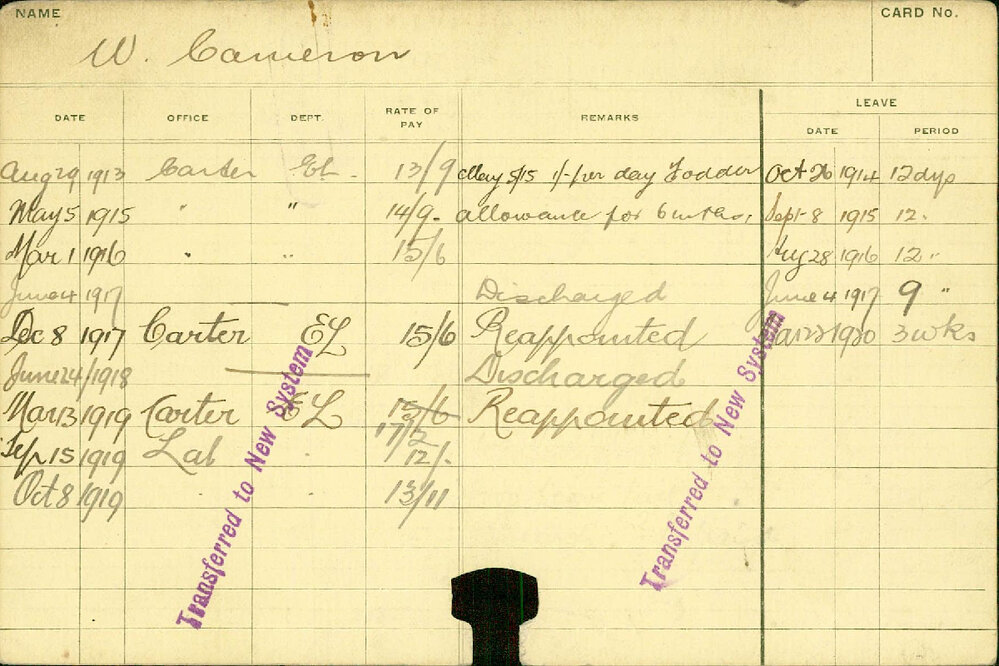 NAME CARD No.
W. Cameron
DATE OFFICE DEPT. RATE OF PAY REMARKS LEAVE
DATE PERIOD
Aug 29 1913 Carter EL. 13/9 May 5/15 1/- per day Fodder Oct 26 1914 12 dys
May 5 1915 " " 14/9. allowance for 6 mths, Sept 8 1915 12 "
Mar 1 1916 " " 15/6 Aug 28 1916 12 "
June 4 1917 Discharged June 4 1917 9 "
Dec 8 1917 Carter EL 15/6 Reappointed 1920 3 wks
June 24/1918 Discharged
Mar 13 1919 Carter EL 15/6 Reappointed
17/2
Sep 15 1919 Lab " 12/-
Oct 8 1919 " " 13/11
Transferred to New System
Transferred to New System